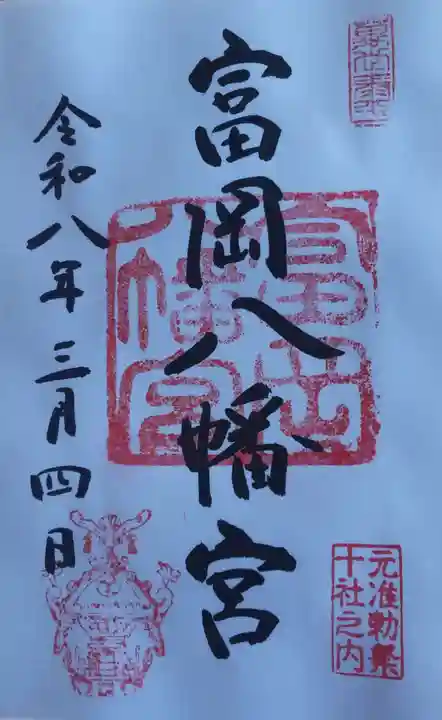 富岡八幡宮
令和八年三月四日
富岡
八幡宮
元准勅祭
十社之内